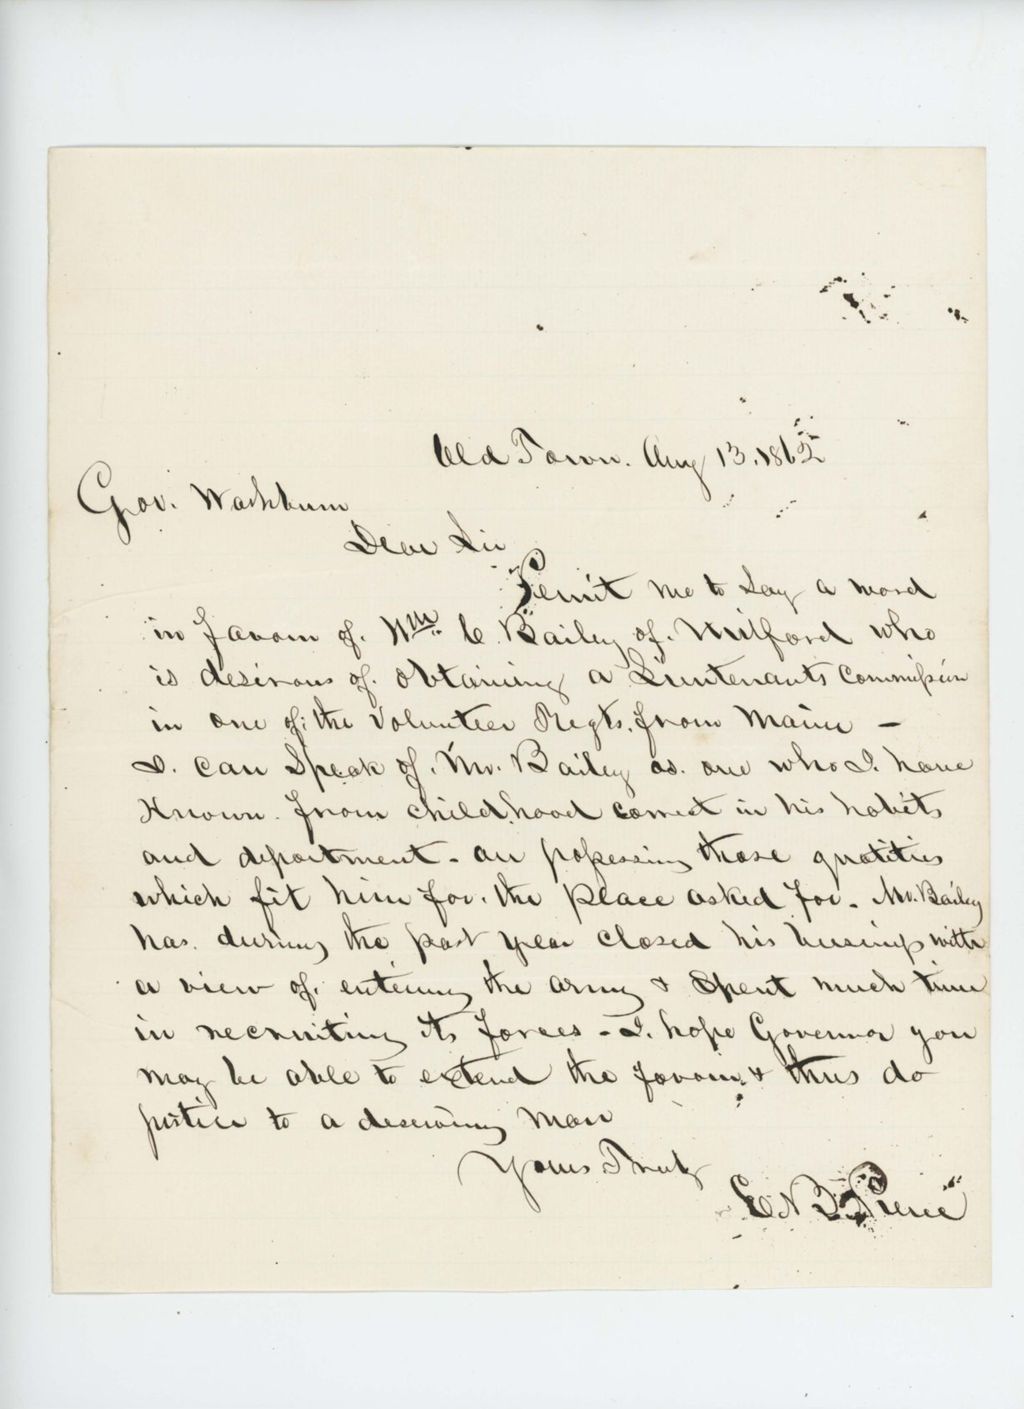 Old Town. Aug 13. 1862
Gov. Washburn
Dear Sir
Permit me to Say a word
in favour of. Wm. C. Bailey of. Milford who
is desirous of. obtaining a Lieutenants Commission
in one of. the Volunteer Regts. from Maine –
I. can Speak of. Mr. Bailey as. one who I. have
Known. from childhood correct in his habits
and department - an possessing those qualities
which fit him for. the Place asked for. Mr. Bailey
has. during the past year closed his business with
a view of. entering the army & Spent much time
in recruiting its forces - I. hope Governor you
may be able to extend the favour, & thus do
justice to a deserving man
Yours Truly
Pierce